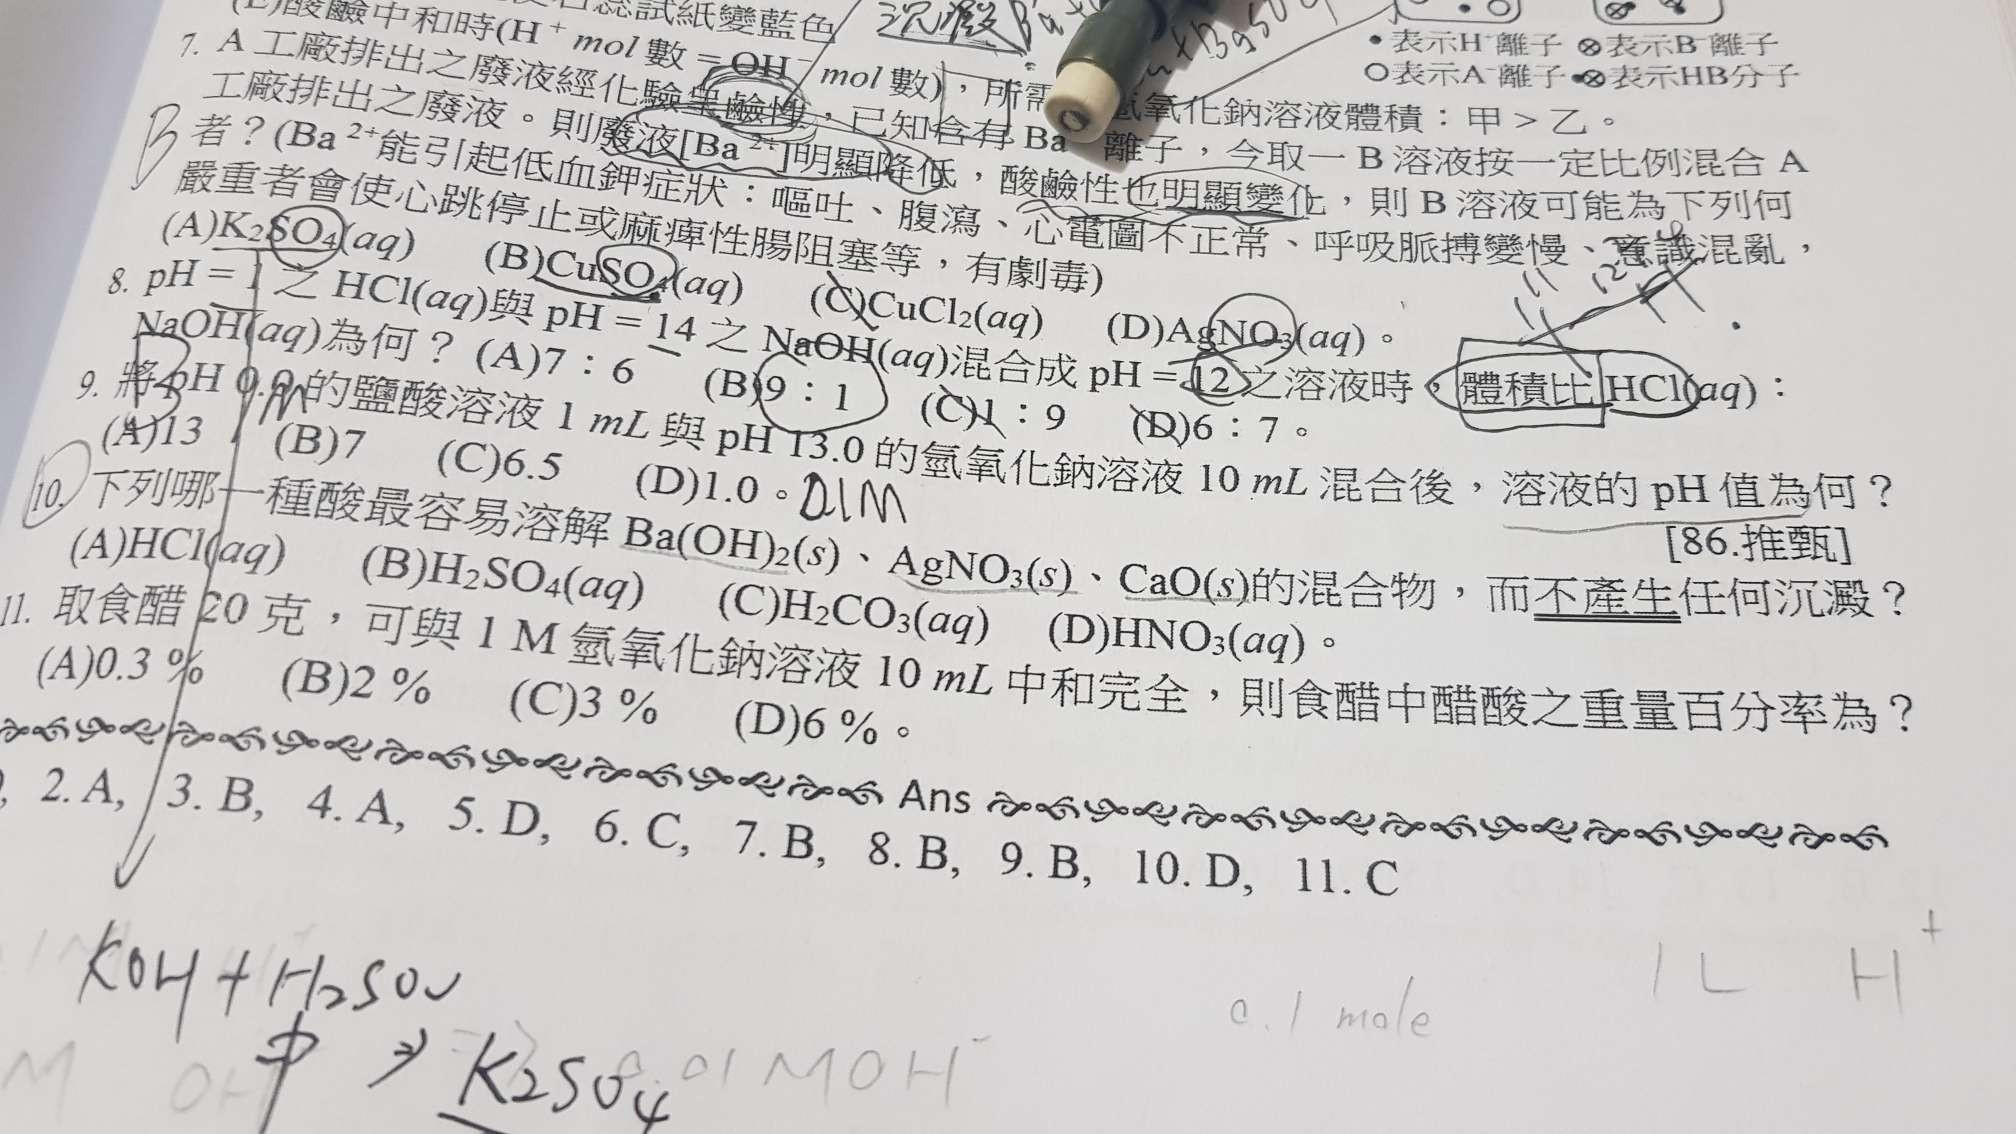 (E)酸鹼中和時(H⁺ mol 數 = OH⁻ mol 數),所需 氫氧化鈉溶液體積:甲 > 乙。
試紙變藍色
沉澱
•表示H⁺離子 ⊗表示B⁻離子
○表示A⁻離子 •⊗表示HB分子
7. A 工廠排出之廢液經化驗呈鹼性,已知含有 Ba 離子,今取一 B 溶液按一定比例混合 A
工廠排出之廢液。則廢液[Ba²⁺]明顯降低,酸鹼性也明顯變化,則 B 溶液可能為下列何
者?(Ba²⁺能引起低血鉀症狀:嘔吐、腹瀉、心電圖不正常、呼吸脈搏變慢、意識混亂,
嚴重者會使心跳停止或麻痺性腸阻塞等,有劇毒)
B
(A)K₂SO₄(aq) (B)CuSO₄(aq) (C)CuCl₂(aq) (D)AgNO₃(aq)。
8. pH = 1 之 HCl(aq)與 pH = 14 之 NaOH(aq)混合成 pH = 12 之溶液時,體積比 HCl(aq):
NaOH(aq)為何? (A)7:6 (B)9:1 (C)1:9 (D)6:7。
9. 將 pH 0.0 的鹽酸溶液 1 mL 與 pH 13.0 的氫氧化鈉溶液 10 mL 混合後,溶液的 pH 值為何?
(A)13 (B)7 (C)6.5 (D)1.0。
[86.推甄]
1M
0.1M
10. 下列哪一種酸最容易溶解 Ba(OH)₂(s)、AgNO₃(s)、CaO(s)的混合物,而不產生任何沉澱?
(A)HCl(aq) (B)H₂SO₄(aq) (C)H₂CO₃(aq) (D)HNO₃(aq)。
11. 取食醋 20 克,可與 1 M 氫氧化鈉溶液 10 mL 中和完全,則食醋中醋酸之重量百分率為?
(A)0.3 % (B)2 % (C)3 % (D)6 %。
Ans
2. A, 3. B, 4. A, 5. D, 6. C, 7. B, 8. B, 9. B, 10. D, 11. C
KOH + H₂SO₄
中 → K₂SO₄
0.1 mole
1 L H⁺
M OH
0.01 M OH⁻